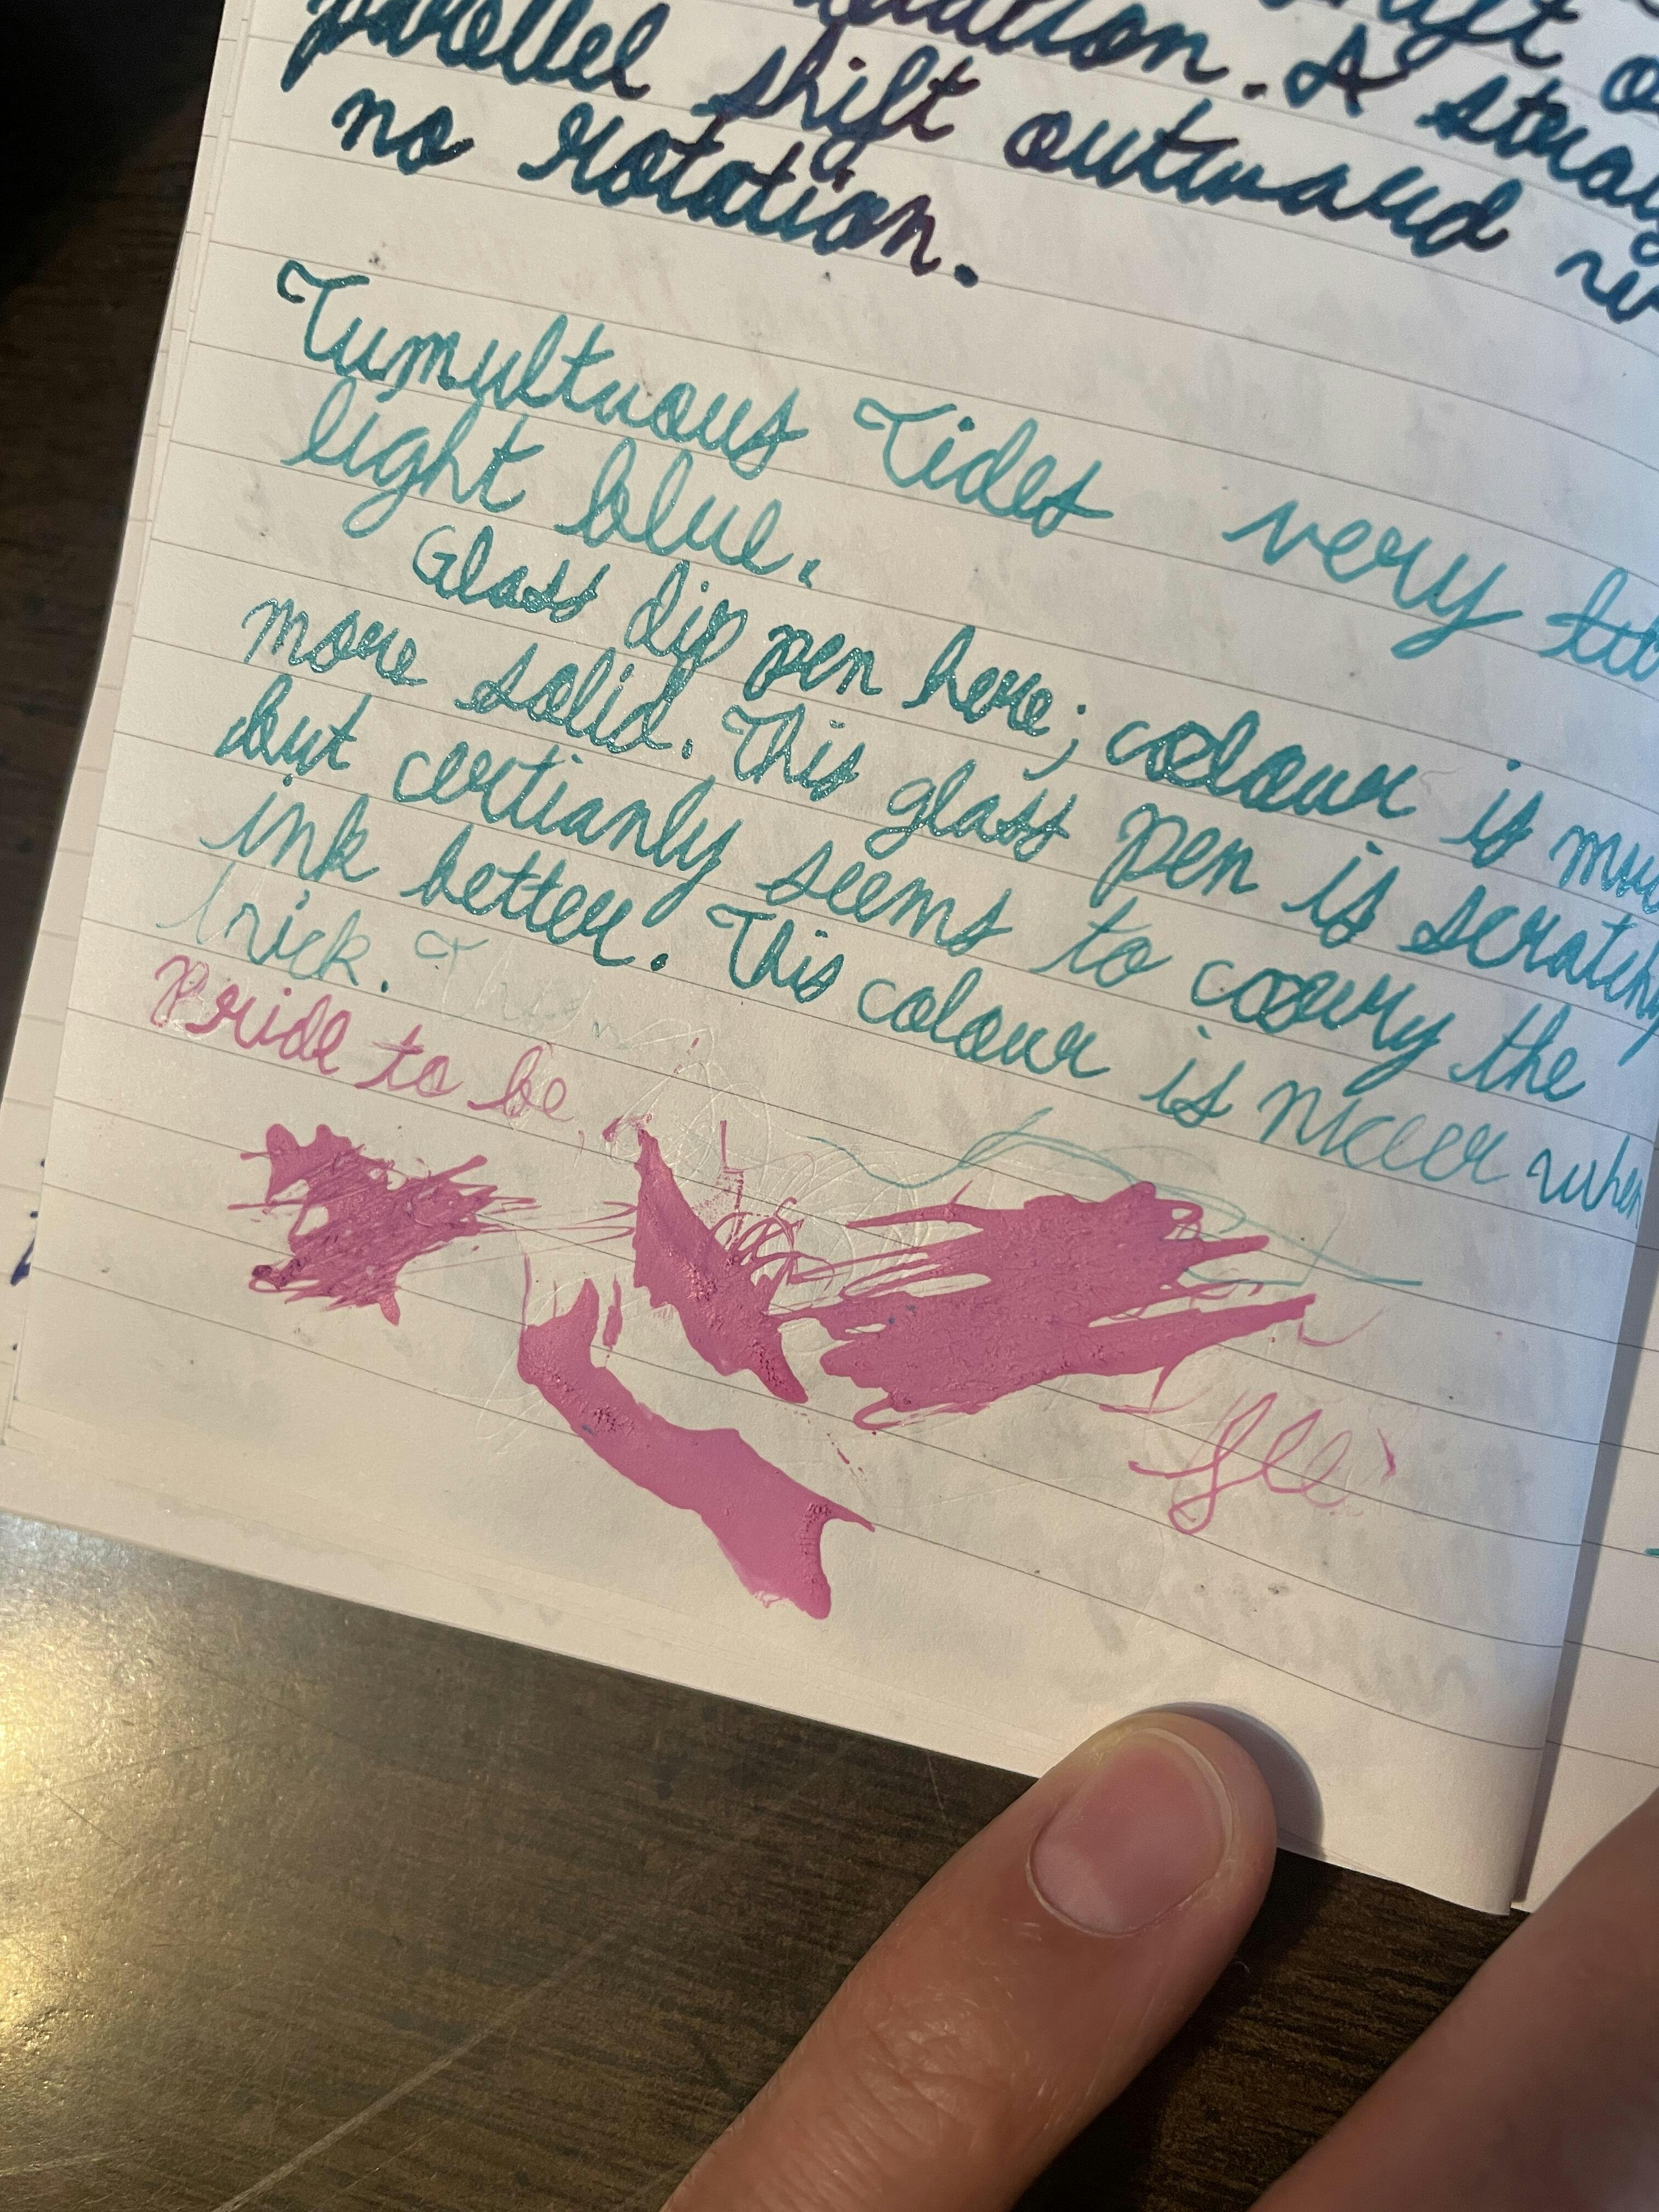 shift
parellel shift outward
no rotation.
Tumultuous Tides very
light blue.
Glass dip pen here; colour is
more solid. This glass pen is scratchy
but certianly seems to carry the
ink better. This colour is nicer when
trick.
Pride to be